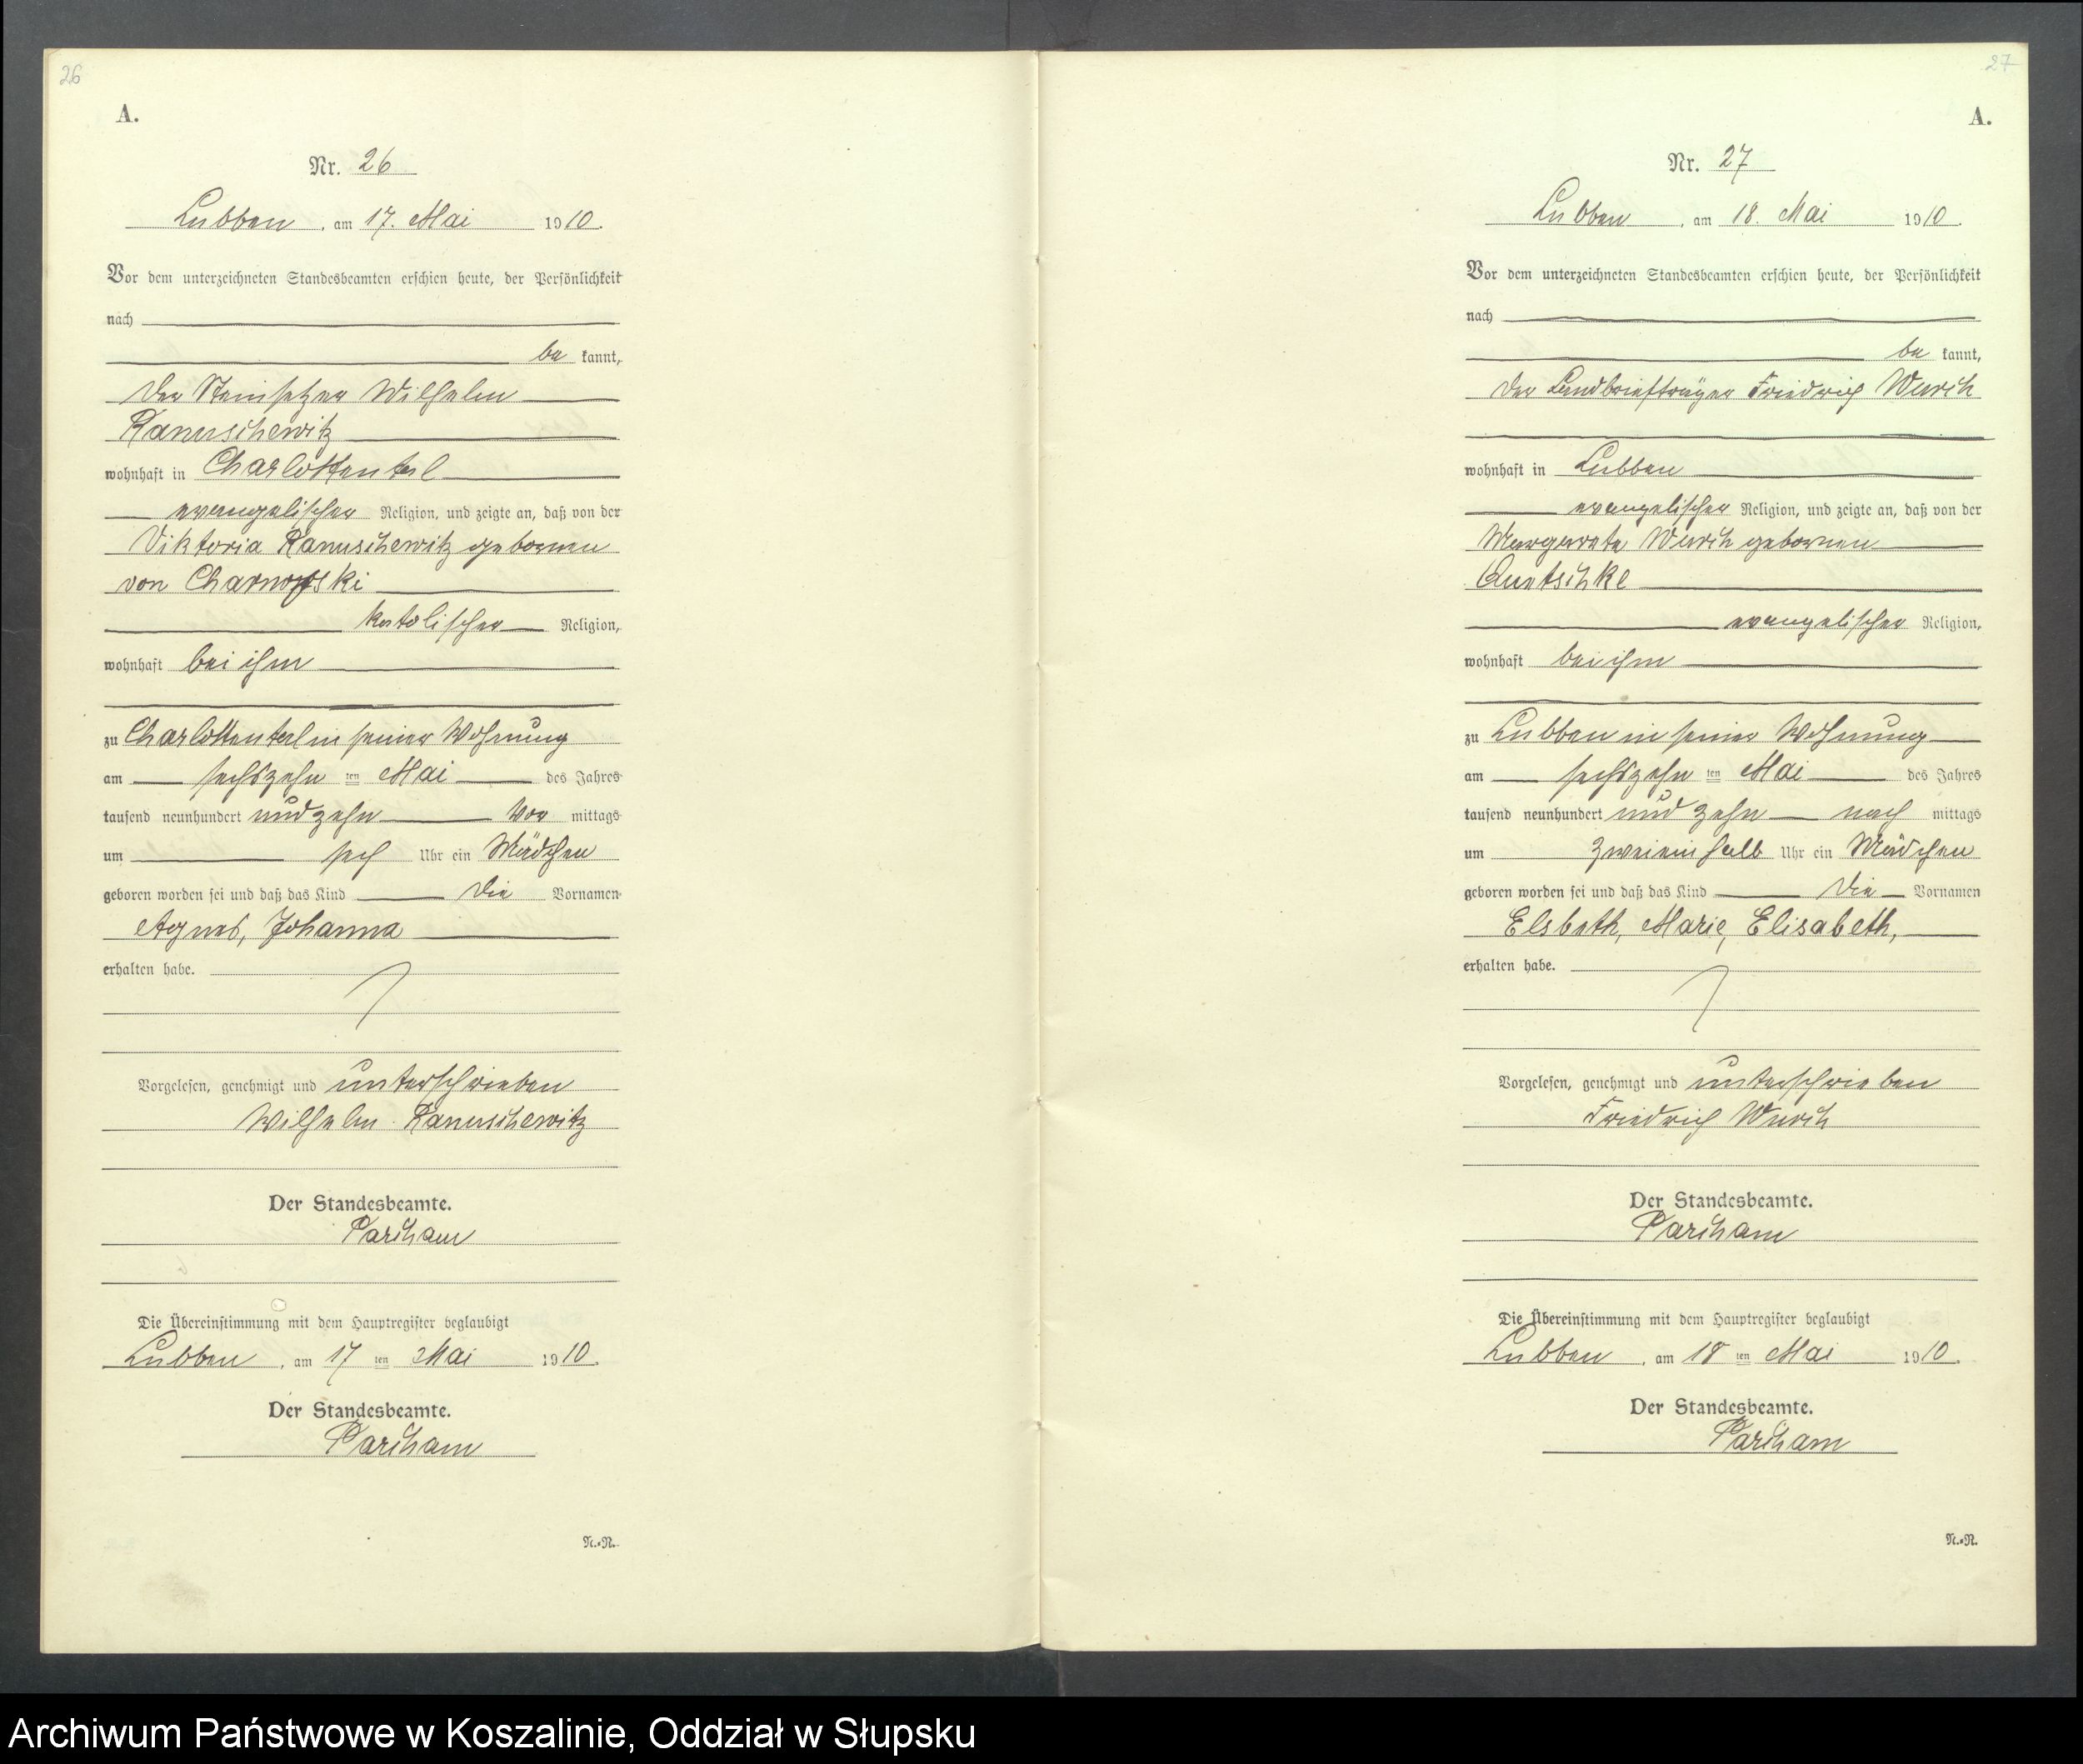 26
A.
Nr. 26
Lubben, am 17. Mai 1910.
Vor dem unterzeichneten Standesbeamten erschien heute, der Persönlichkeit
nach
be kannt,
der Steinsetzer Wilhelm
Ranuschewitz
wohnhaft in Charlottental
evangelischer Religion, und zeigte an, daß von der
Viktoria Ranuschewitz gebornen
von
katolischer Religion,
wohnhaft bei ihm
zu Charlottental in seiner Wohnung
am sechszehn ten Mai des Jahres
tausend neunhundert und zehn vor mittags
um Uhr ein Mädchen
geboren worden sei und daß das Kind die Vornamen
Agnes, Johanna
erhalten habe.
Vorgelesen, genehmigt und unterschrieben
Wilhelm Ranuschewitz
Der Standesbeamte.
Parcham
Die Übereinstimmung mit dem Hauptregister beglaubigt
Lubben, am 17 ten Mai 1910.
Der Standesbeamte.
Parcham
N.-R.
27
A.
Nr. 27
Lubben, am 18. Mai 1910.
Vor dem unterzeichneten Standesbeamten erschien heute, der Persönlichkeit
nach
be kannt,
der Landbriefträger Friedrich Wurch
wohnhaft in Lubben
evangelischer Religion, und zeigte an, daß von der
Margarete Wurch gebornen
Quetschke
evangelischer Religion,
wohnhaft bei ihm
zu Lubben in seiner Wohnung
am sechszehn ten Mai des Jahres
tausend neunhundert und zehn nach mittags
um zweieinhalb Uhr ein Mädchen
geboren worden sei und daß das Kind die Vornamen
Elsbeth, Marie, Elisabeth,
erhalten habe.
Vorgelesen, genehmigt und unterschrieben
Friedrich Wurch
Der Standesbeamte.
Parcham
Die Übereinstimmung mit dem Hauptregister beglaubigt
Lubben, am 18 ten Mai 1910.
Der Standesbeamte.
Parcham
N.-R.
Archiwum Państwowe w Koszalinie, Oddział w Słupsku